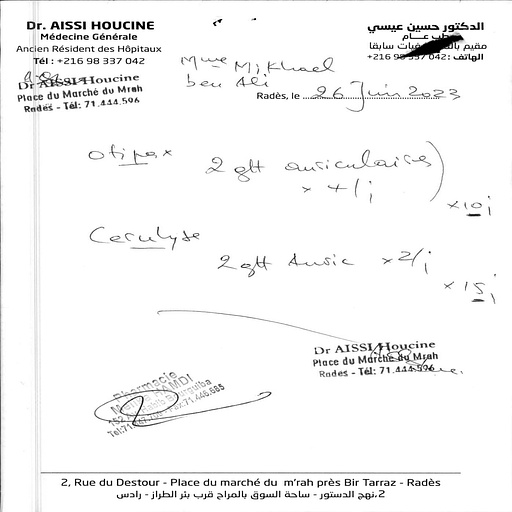 Dr. AISSI HOUCINE
Médecine Générale
Ancien Résident des Hôpitaux
Tél : +216 98 337 042
الدكتور حسين عيسي
طب عــام
مقيم سابقا
الهاتف : 042 337 98 216+
Dr AISSI Houcine
Place du Marché du Mrah
Radès - Tél: 71.444.596
Mme Mikhael
ben Ali
Radès, le 26 Juin 2023
Otipax 2 gtt auriculaires
x 4/j
x 10 j
Cerulyse
2 gtt Auric x 2/j
x 15 j
Dr AISSI Houcine
Place du Marché du Mrah
Rades - Tél: 71.444.596
Pharmacie
HAMDI
2, Rue du Destour - Place du marché du m'rah près Bir Tarraz - Radès
2،نهج الدستور - ساحة السوق بالمراح قرب بئر الطراز - رادس